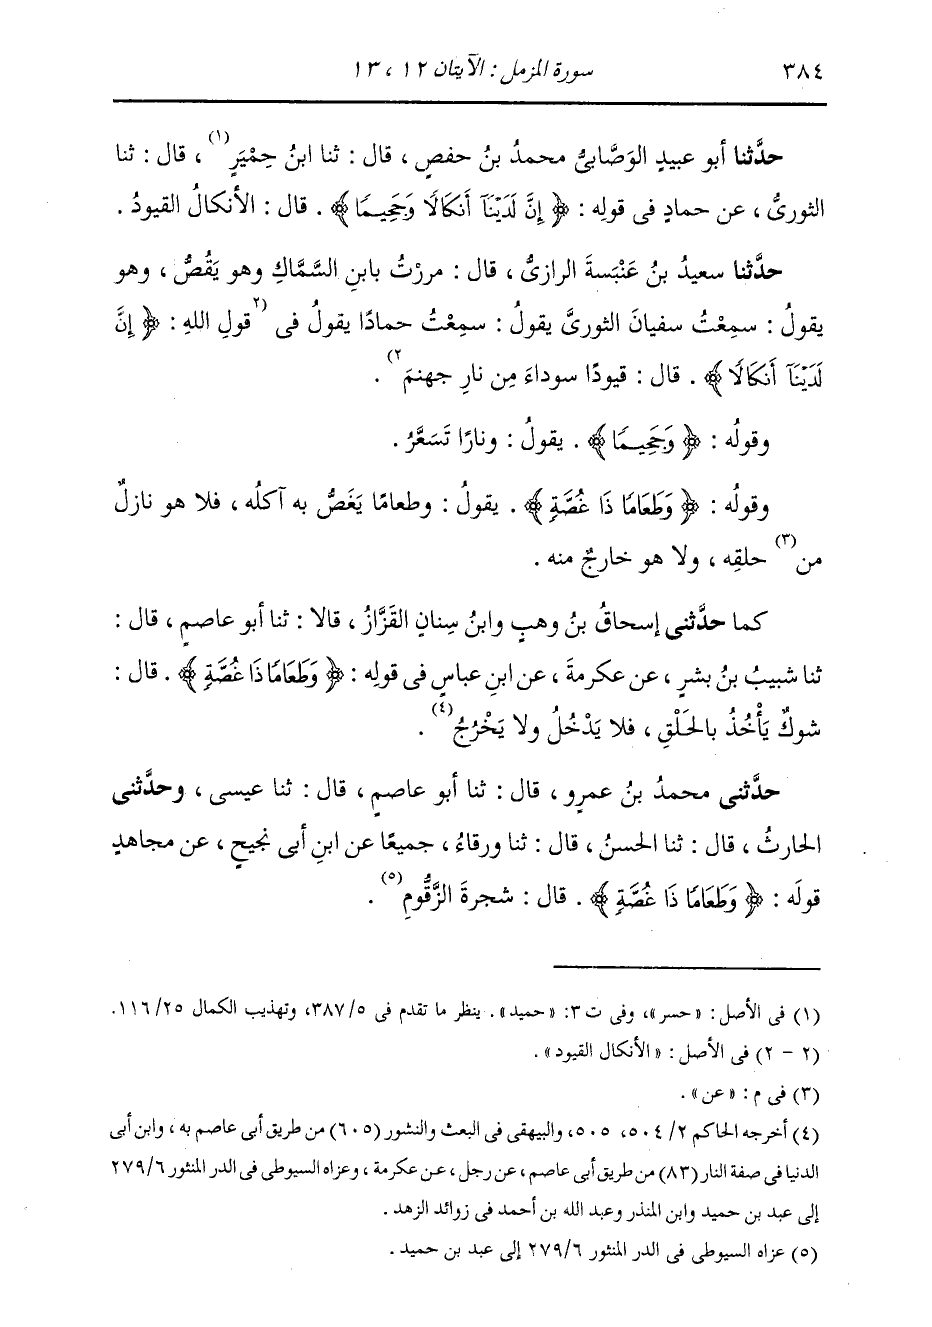 ٣٨٤
سورة المزمل : الآيتان ١٢ ، ١٣
حدَّثنا أبو عبيدٍ الوَصَّابىُّ محمدُ بنُ حفصٍ ، قال : ثنا ابنُ حِمْيَرٍ(١) ، قال : ثنا
الثورىُّ ، عن حمادٍ فى قولِه : ﴿ إِنَّ لَدَيْنَآ أَنكَالًا وَجَحِيمًا ﴾ . قال : الأنكالُ القيودُ .
حدَّثنا سعيدُ بنُ عَنْبَسةَ الرازىُّ ، قال : مررْتُ بابنِ السَّمَّاكِ وهو يَقُصُّ ، وهو
يقولُ : سمِعْتُ سفيانَ الثورىَّ يقولُ : سمِعْتُ حمادًا يقولُ فى (٢قولِ اللهِ : ﴿ إِنَّ
لَدَيْنَآ أَنكَالًا ﴾ . قال : قيودًا سوداءَ مِن نارِ جهنمَ٢) .
وقولُه : ﴿ وَجَحِيمًا ﴾ . يقولُ : ونارًا تَسَعَّرُ .
وقولُه : ﴿ وَطَعَامًا ذَا غُصَّةٍ ﴾ . يقولُ : وطعامًا يَغَصُّ به آكلُه ، فلا هو نازلٌ
من(٣) حلقِه ، ولا هو خارجٌ منه .
كما حدَّثنى إسحاقُ بنُ وهبٍ وابنُ سِنانٍ القزَّازُ ، قالا : ثنا أبو عاصمٍ ، قال :
ثنا شبيبُ بنُ بشرٍ ، عن عكرمةَ ، عن ابنِ عباسٍ فى قولِه : ﴿ وَطَعَامًا ذَا غُصَّةٍ ﴾ . قال :
شوكٌ يَأْخُذُ بالحَلْقِ ، فلا يَدْخُلُ ولا يَخْرُجُ(٤) .
حدَّثنى محمدُ بنُ عمرٍو ، قال : ثنا أبو عاصمٍ ، قال : ثنا عيسى ، وحدَّثنى
الحارثُ ، قال : ثنا الحسنُ ، قال : ثنا ورقاءُ ، جميعًا عن ابنِ أبى نجيحٍ ، عن مجاهدٍ
قولَه : ﴿ وَطَعَامًا ذَا غُصَّةٍ ﴾ . قال : شجرةَ الزَّقُّومِ(٥) .
(١) فى الأصل : «حسر»، وفى ت ٣: «حميد». ينظر ما تقدم فى ٣٨٧/٥، وتهذيب الكمال ١١٦/٢٥.
(٢ - ٢) فى الأصل : «الأنكال القيود» .
(٣) فى م : «عن» .
(٤) أخرجه الحاكم ٢/ ٥٠٤، ٥٠٥، والبيهقى فى البعث والنشور (٦٠٥) من طريق أبى عاصم به ، وابن أبى
الدنيا فى صفة النار (٨٣) من طريق أبى عاصم ، عن رجل ، عن عكرمة ، وعزاه السيوطى فى الدر المنثور ٢٧٩/٦
إلى عبد بن حميد وابن المنذر وعبد الله بن أحمد فى زوائد الزهد .
(٥) عزاه السيوطى فى الدر المنثور ٢٧٩/٦ إلى عبد بن حميد .